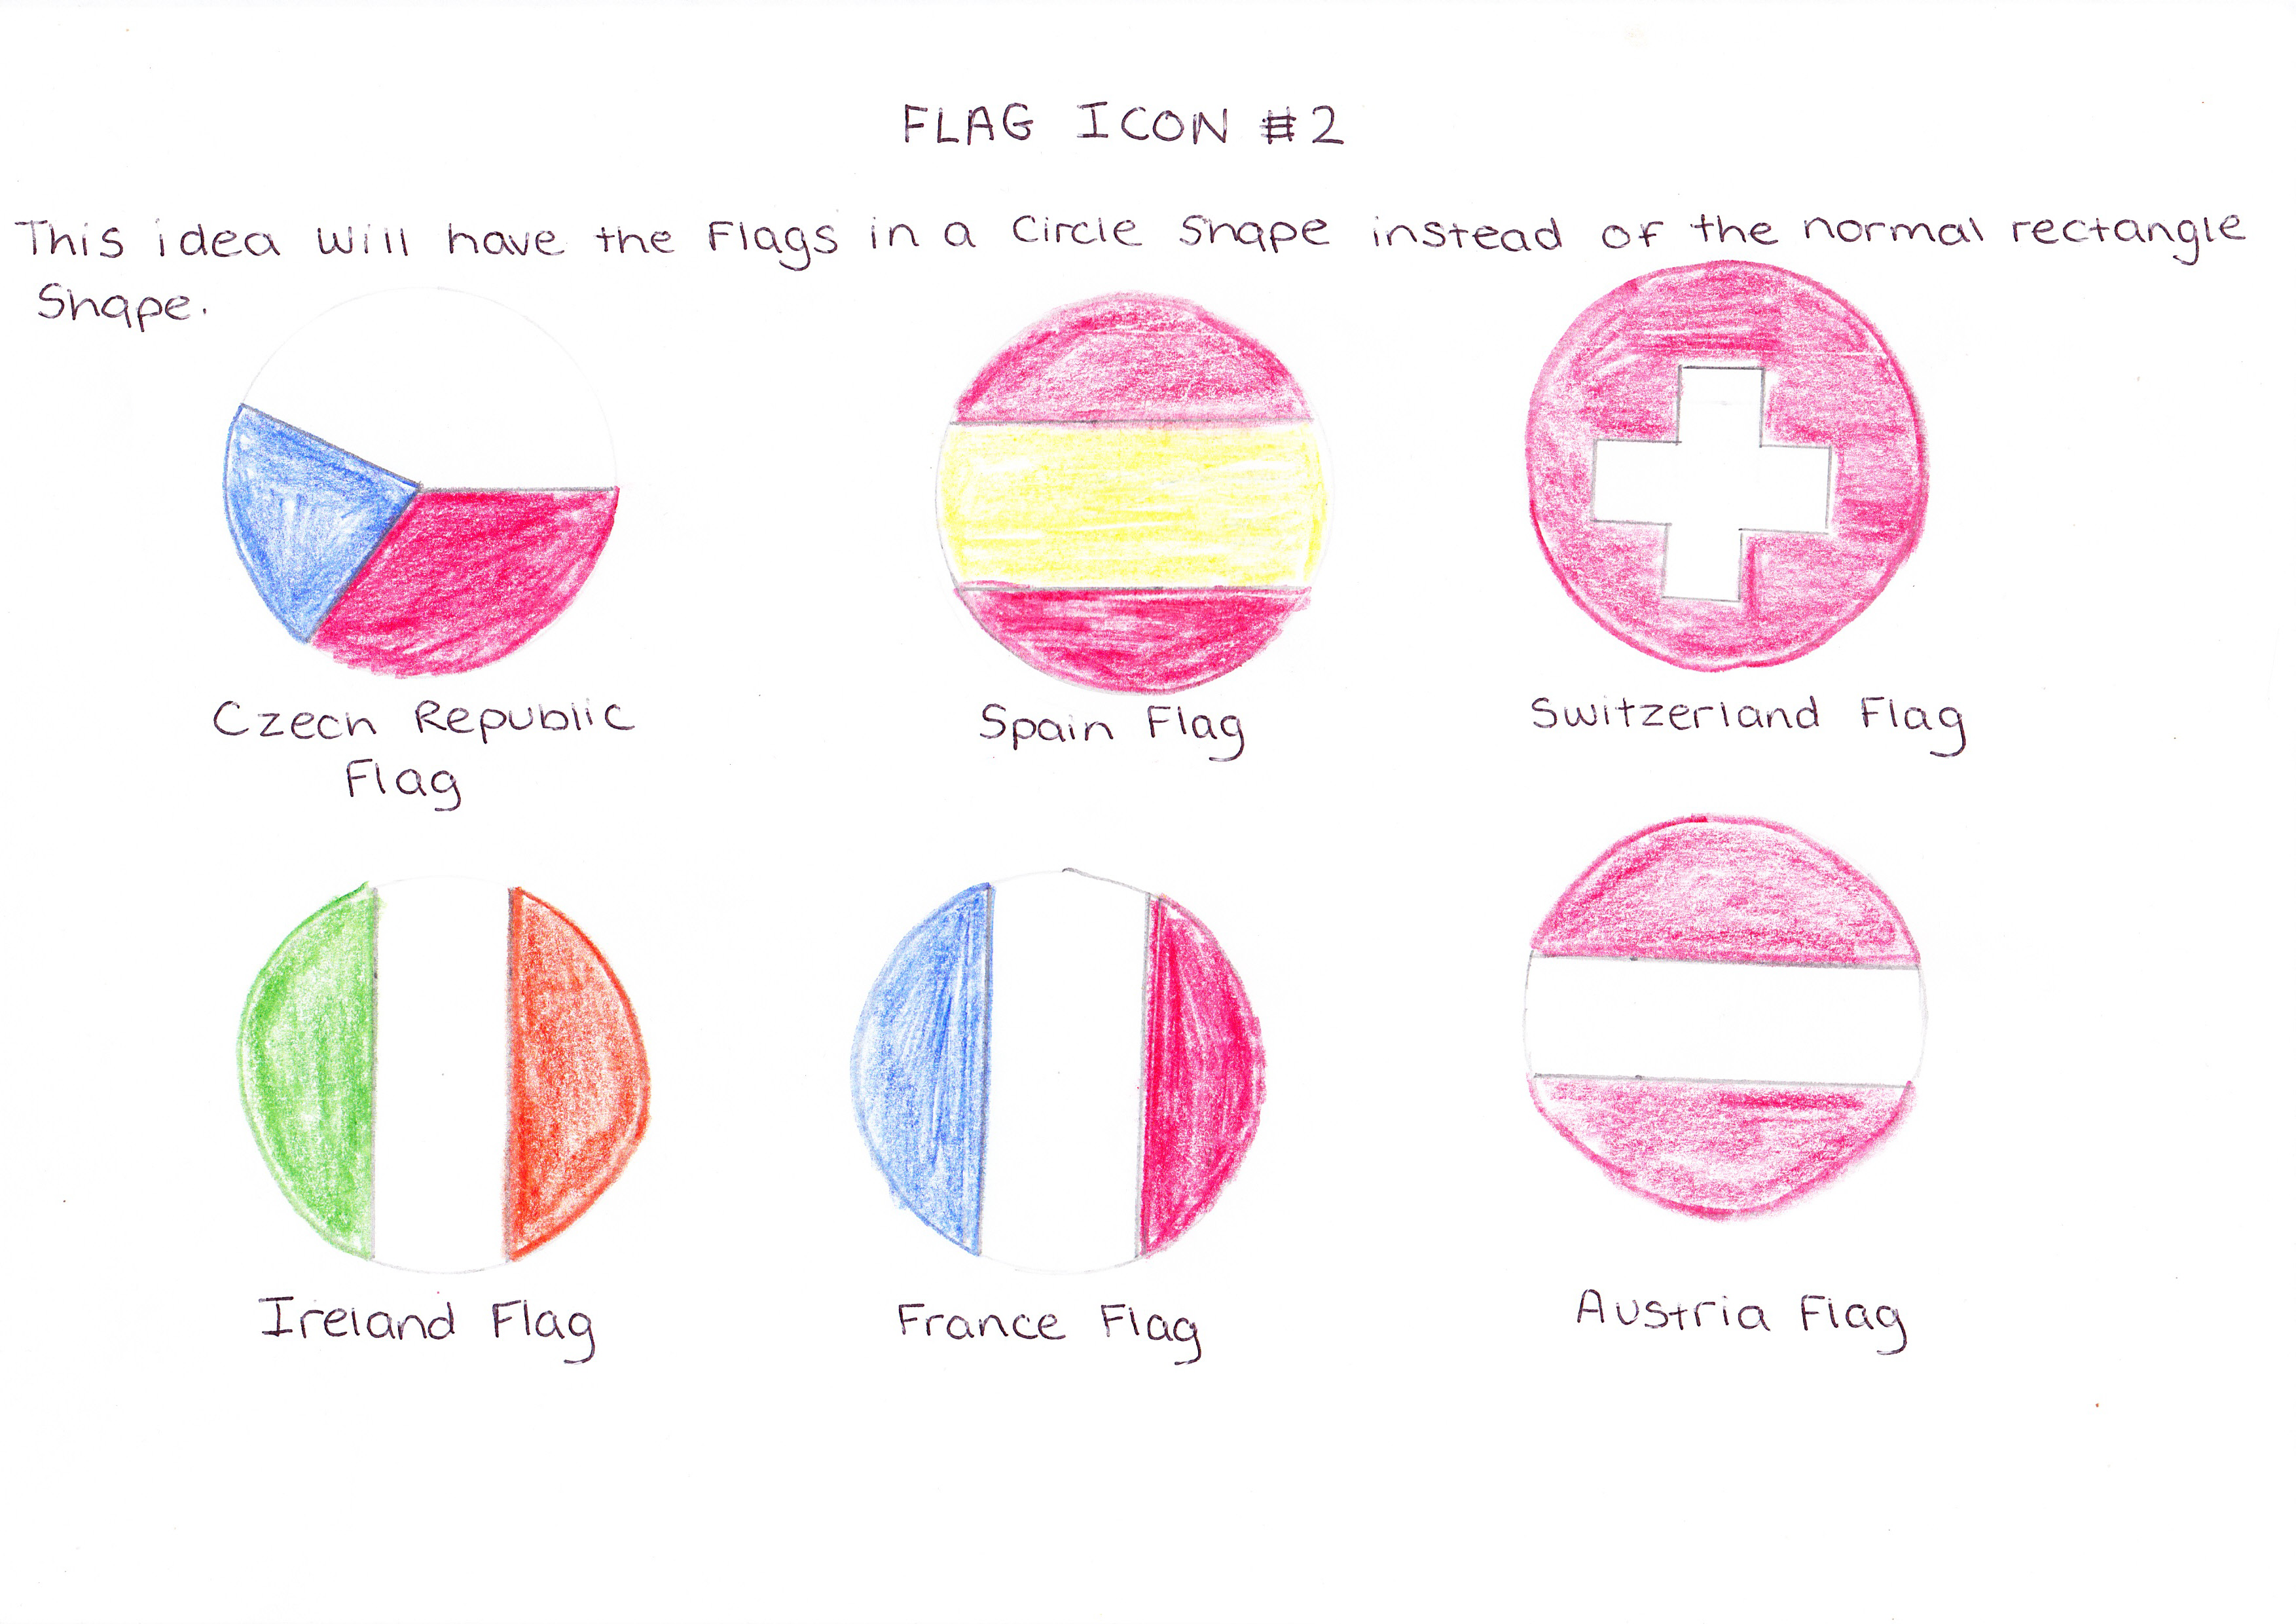 FLAG ICON #2
This idea will have the Flags in a Circle Shape instead of the normal rectangle
Shape.
Czech Republic
Flag
Spain Flag
Switzerland Flag
Ireland Flag
France Flag
Austria Flag